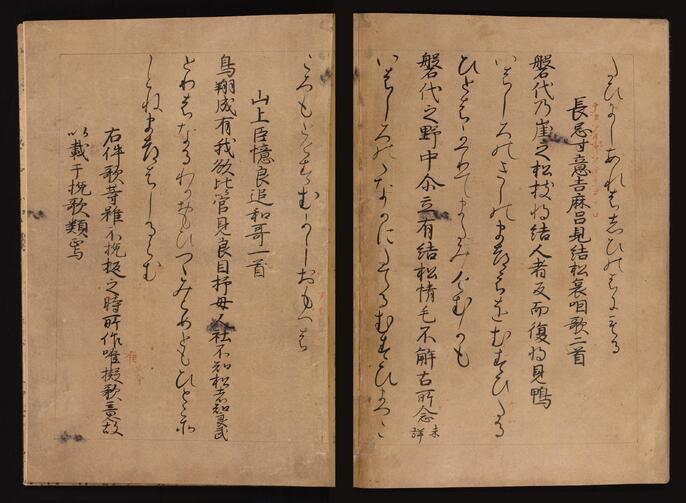 たひにしあれはしひのはにもる
長忌寸意吉麻呂見結松哀咽歌二首
磐代乃崖之松枝将結人者反而復将見鴨
いはしろのきしのまつ
ひとはかへりてまた
磐代之野中尓立有結松情毛不解古所念 未詳
いはしろのゝなかにたてるむすひまつこ
ころもとけすむかしおもへは
山上臣憶良追和哥一首
鳥翔成有我欲比管見良目杼母人社不知松者知良武
つゝみらめともひとこそ
しらねまつはしるらむ
右件歌等雖不挽柩之時所作唯擬歌意故
以載于挽歌類焉